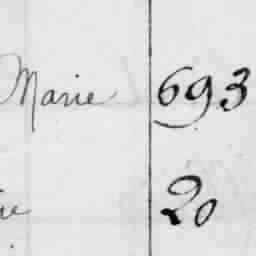 Marie 693
20